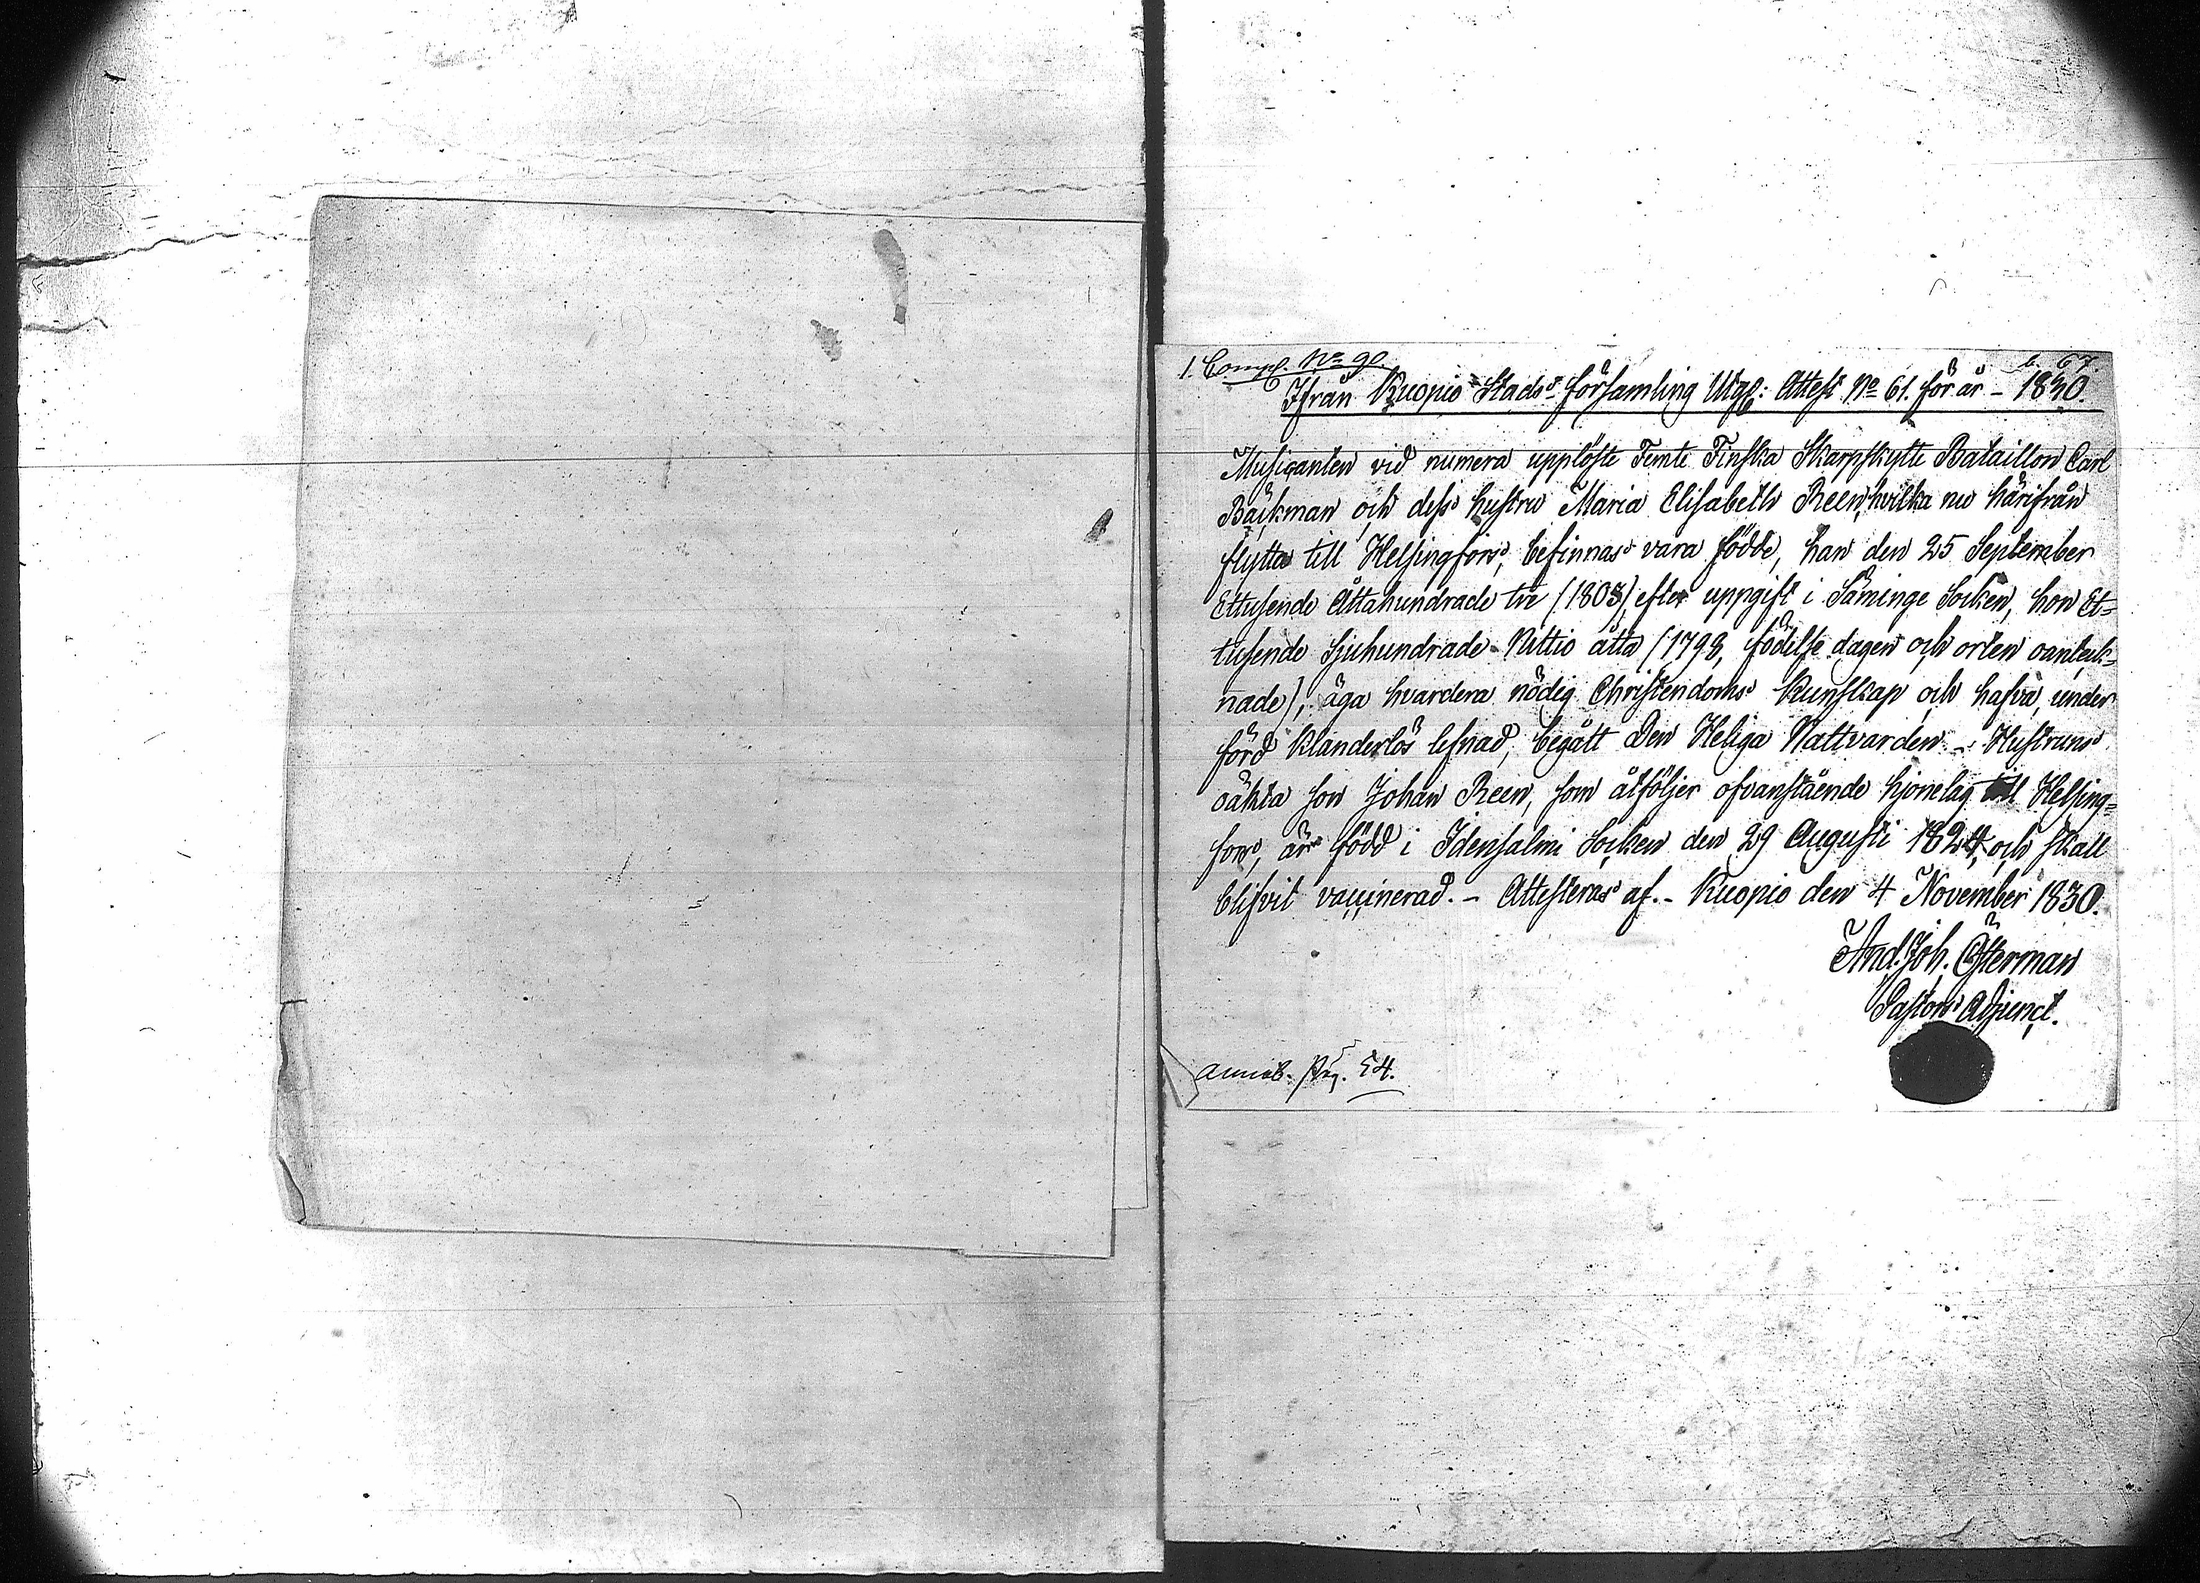 1. Comp. No 90.
b. 67
Ifrån Kuopio Stads församling Utgl: Attest No 61. för år - 1830.
Musicanten vid numera upplöste Femte Finska Skarpskytte Bataillon Carl
Bäckman och dess hustru Maria Elisabeth Reen, hvilka nu härifrån
flytta till Helsingfors, befinnas vara födde, han den 25 September
Ettusende Åttahundrade tre (1803) efter uppgift i Säminge Socken, hon Et-
tusende Sjuhundrade Nittio åtta (1798, födelse dagen och orten oanteck-
nade), äga hvardera nödig Christendoms kunskap och hafva, under
förd klanderlös lefnad, begått Den Heliga Nattvarden. - Hustruns
oäkta son Johan Reen, som åtföljer ofvanstående hjonelag till Helsing-
fors, är född i Idensalmi Socken den 29 Augusti 1824, och skall
blifvit vaccinerad. - Attesteras af. - Kuopio den 4 November 1830.
And. Joh. Österman
Pastors Adjunct.
Pag. 54.